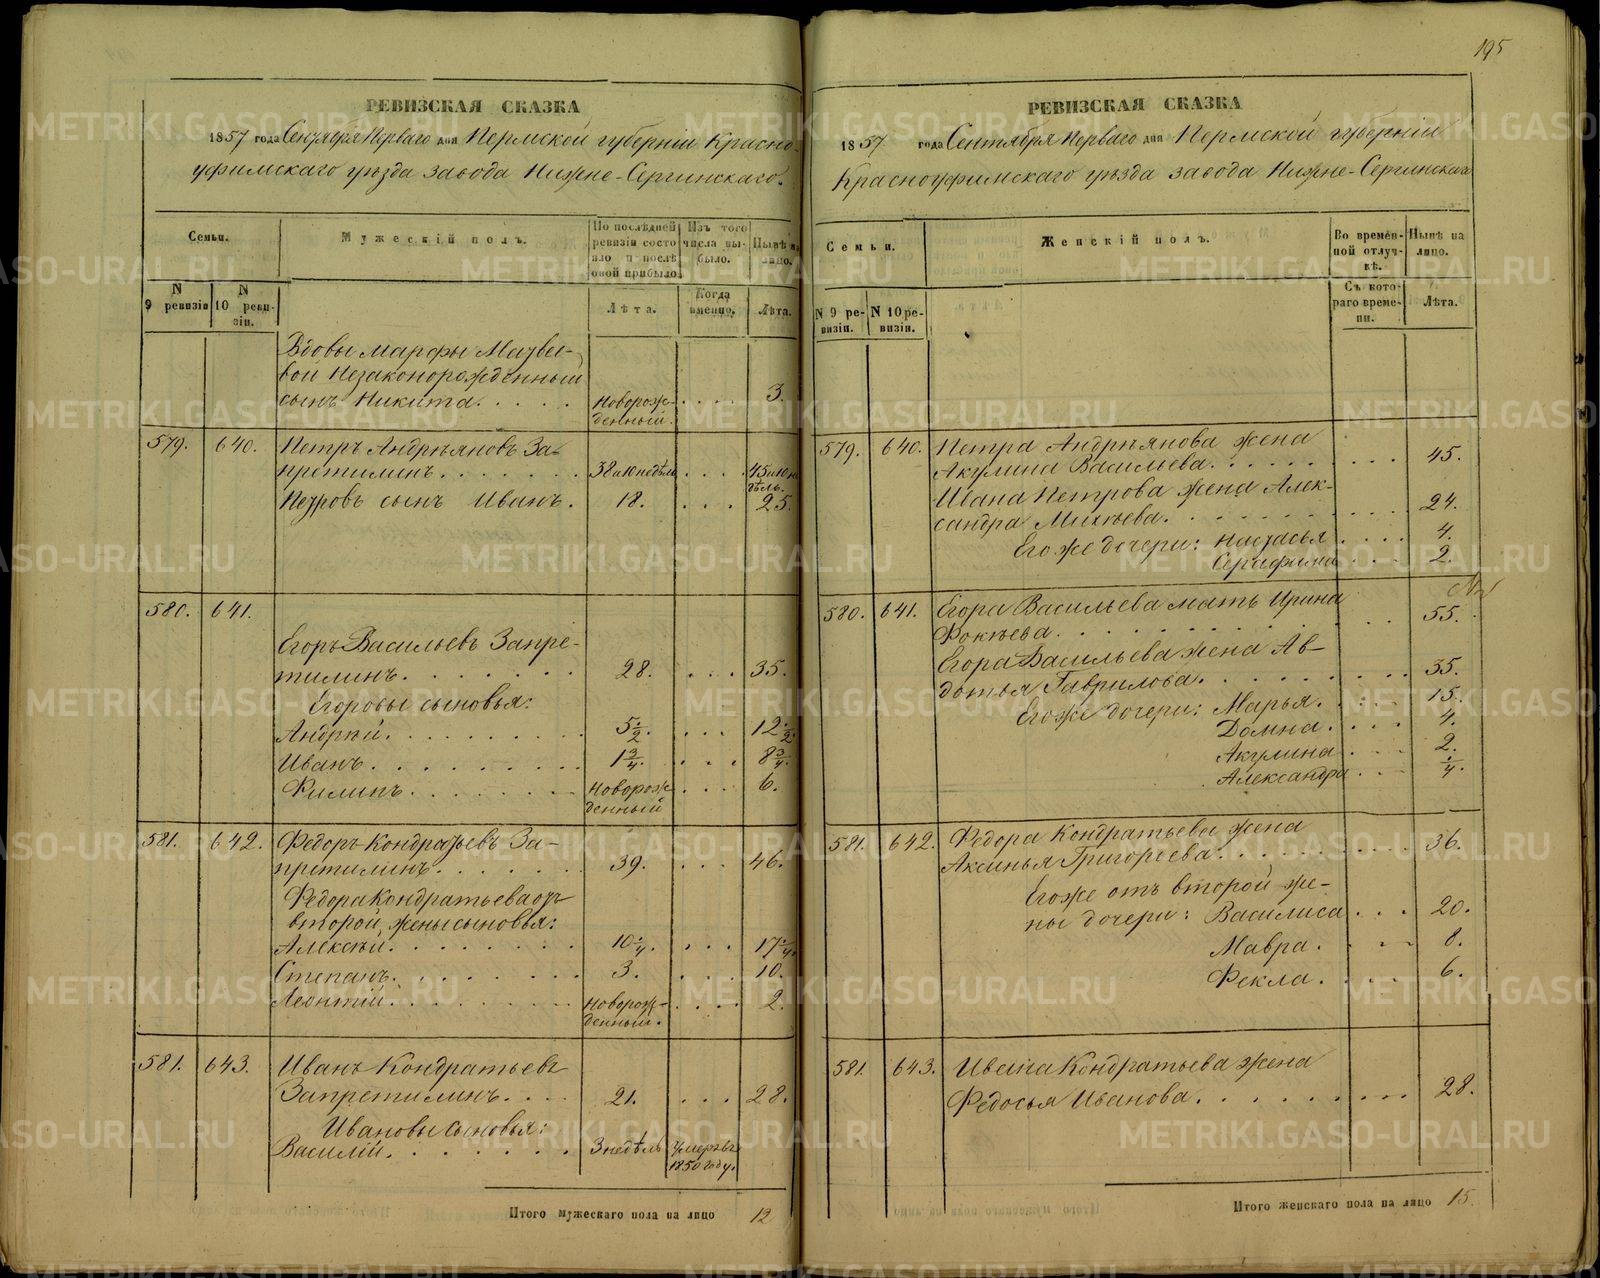 РЕВИЗСКАЯ СКАЗКА
1857 года Сентября Перваго дня Пермской губерніи Красно-
уфимскаго уѣзда завода Нижне-Сергинскаго.
Семьи.
Мужескій полъ.
По послѣдней ревизіи состояло и послѣ оной прибыло.
Изъ того числа выбыло.
Нынѣ на лицо.
N 9 ревизіи
N 10 ревизіи.
Лѣта.
Когда именно.
Лѣта.
Вдовы Марфы Матвѣе-
вой Незаконорожденный
сынъ Никита. Новорожденный. 3.
579. 640. Петръ Андрѣяновъ За-
претилинъ. 38 и 10 недѣль 45 и 10 недѣль.
Петровъ сынъ Иванъ. 18. 25.
580. 641.
Егоръ Васильевъ Запре-
тилинъ. 28. 35.
Егоровы сыновья:
Андрѣй. 5 1/2. 12 1/2.
Иванъ. 1 3/4. 8 3/4.
Филипъ. Новорожденный 6.
581. 642. Федоръ Кондратьевъ За-
претилинъ. 39. 46.
Федора Кондратьева отъ
второй жены сыновья:
Алексѣй. 10 1/4. 17 1/4.
Степанъ. 3. 10.
Леонтій. Новорожденный. 2.
581. 643. Иванъ Кондратьевъ
Запретилинъ. 21. 28.
Ивановы сыновья:
Василій. 3 недѣль Умеръ въ 1850 году.
Итого мужескаго пола на лицо 12
195
РЕВИЗСКАЯ СКАЗКА
1857 года Сентября Перваго дня Пермской губерніи
Красноуфимскаго уѣзда завода Нижне-Сергинскаго
Семьи.
Женскій полъ.
Во временной отлучкѣ.
Нынѣ на лицо.
N 9 ревизіи.
N 10 ревизіи.
Съ котораго времени.
Лѣта.
579. 640. Петра Андрѣянова жена
Акулина Васильева. 45.
Ивана Петрова жена Алек-
сандра Михѣева. 24.
Его же дочери: Настасья 4.
Серафима 2.
580. 641. Егора Васильева мать Ирина
Фокѣева. 55.
Егора Васильева жена Ав-
дотья Гаврилова. 35.
Его же дочери: Марья. 15.
Домна. 4.
Акулина 2.
Александра 1/4.
581. 642. Федора Кондратьева жена
Аксинья Григорьева. 36.
Его же отъ второй же-
ны дочери: Василиса 20.
Мавра. 8.
Фекла. 6.
581. 643. Ивана Кондратьева жена
Федосья Иванова. 28.
Итого женскаго пола на лицо 15.
METRIKI.GASO-URAL.RU